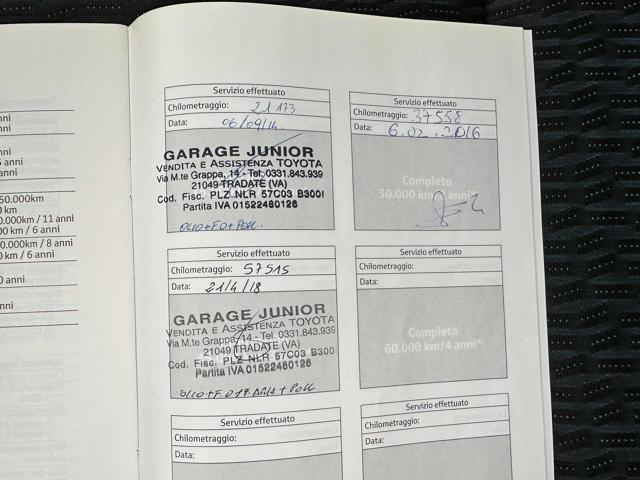 anni
anni
anni
5 anni
anni
50.000km
0 km
km / 11 anni
00 km / 6 anni
0.000km / 8 anni
0 km / 6 anni
anni
anni
Servizio effettuato
Chilometraggio: 21173
Data: 06/09/14
GARAGE JUNIOR
VENDITA E ASSISTENZA TOYOTA
Via M.te Grappa, 14 - Tel. 0331.843.939
21049 TRADATE (VA)
Cod. Fisc. PLZ NLR 57C03 B300I
Partita IVA 01522480126
OLIO+F.O+POLL.
Servizio effettuato
Chilometraggio: 37558
Data: 6.02.2016
Completo
30.000 km/ anni*
Servizio effettuato
Chilometraggio: 57515
Data: 21/4/18
GARAGE JUNIOR
VENDITA E ASSISTENZA TOYOTA
Via M.te Grappa, 14 - Tel. 0331.843.939
21049 TRADATE (VA)
Cod. Fisc. PLZ NLR 57C03 B300I
Partita IVA 01522480126
OLIO+F.O+F. + POLL
Servizio effettuato
Chilometraggio:
Data:
Completo
60.000 km/4 anni*
Servizio effettuato
Chilometraggio:
Data:
Servizio effettuato
Chilometraggio:
Data: